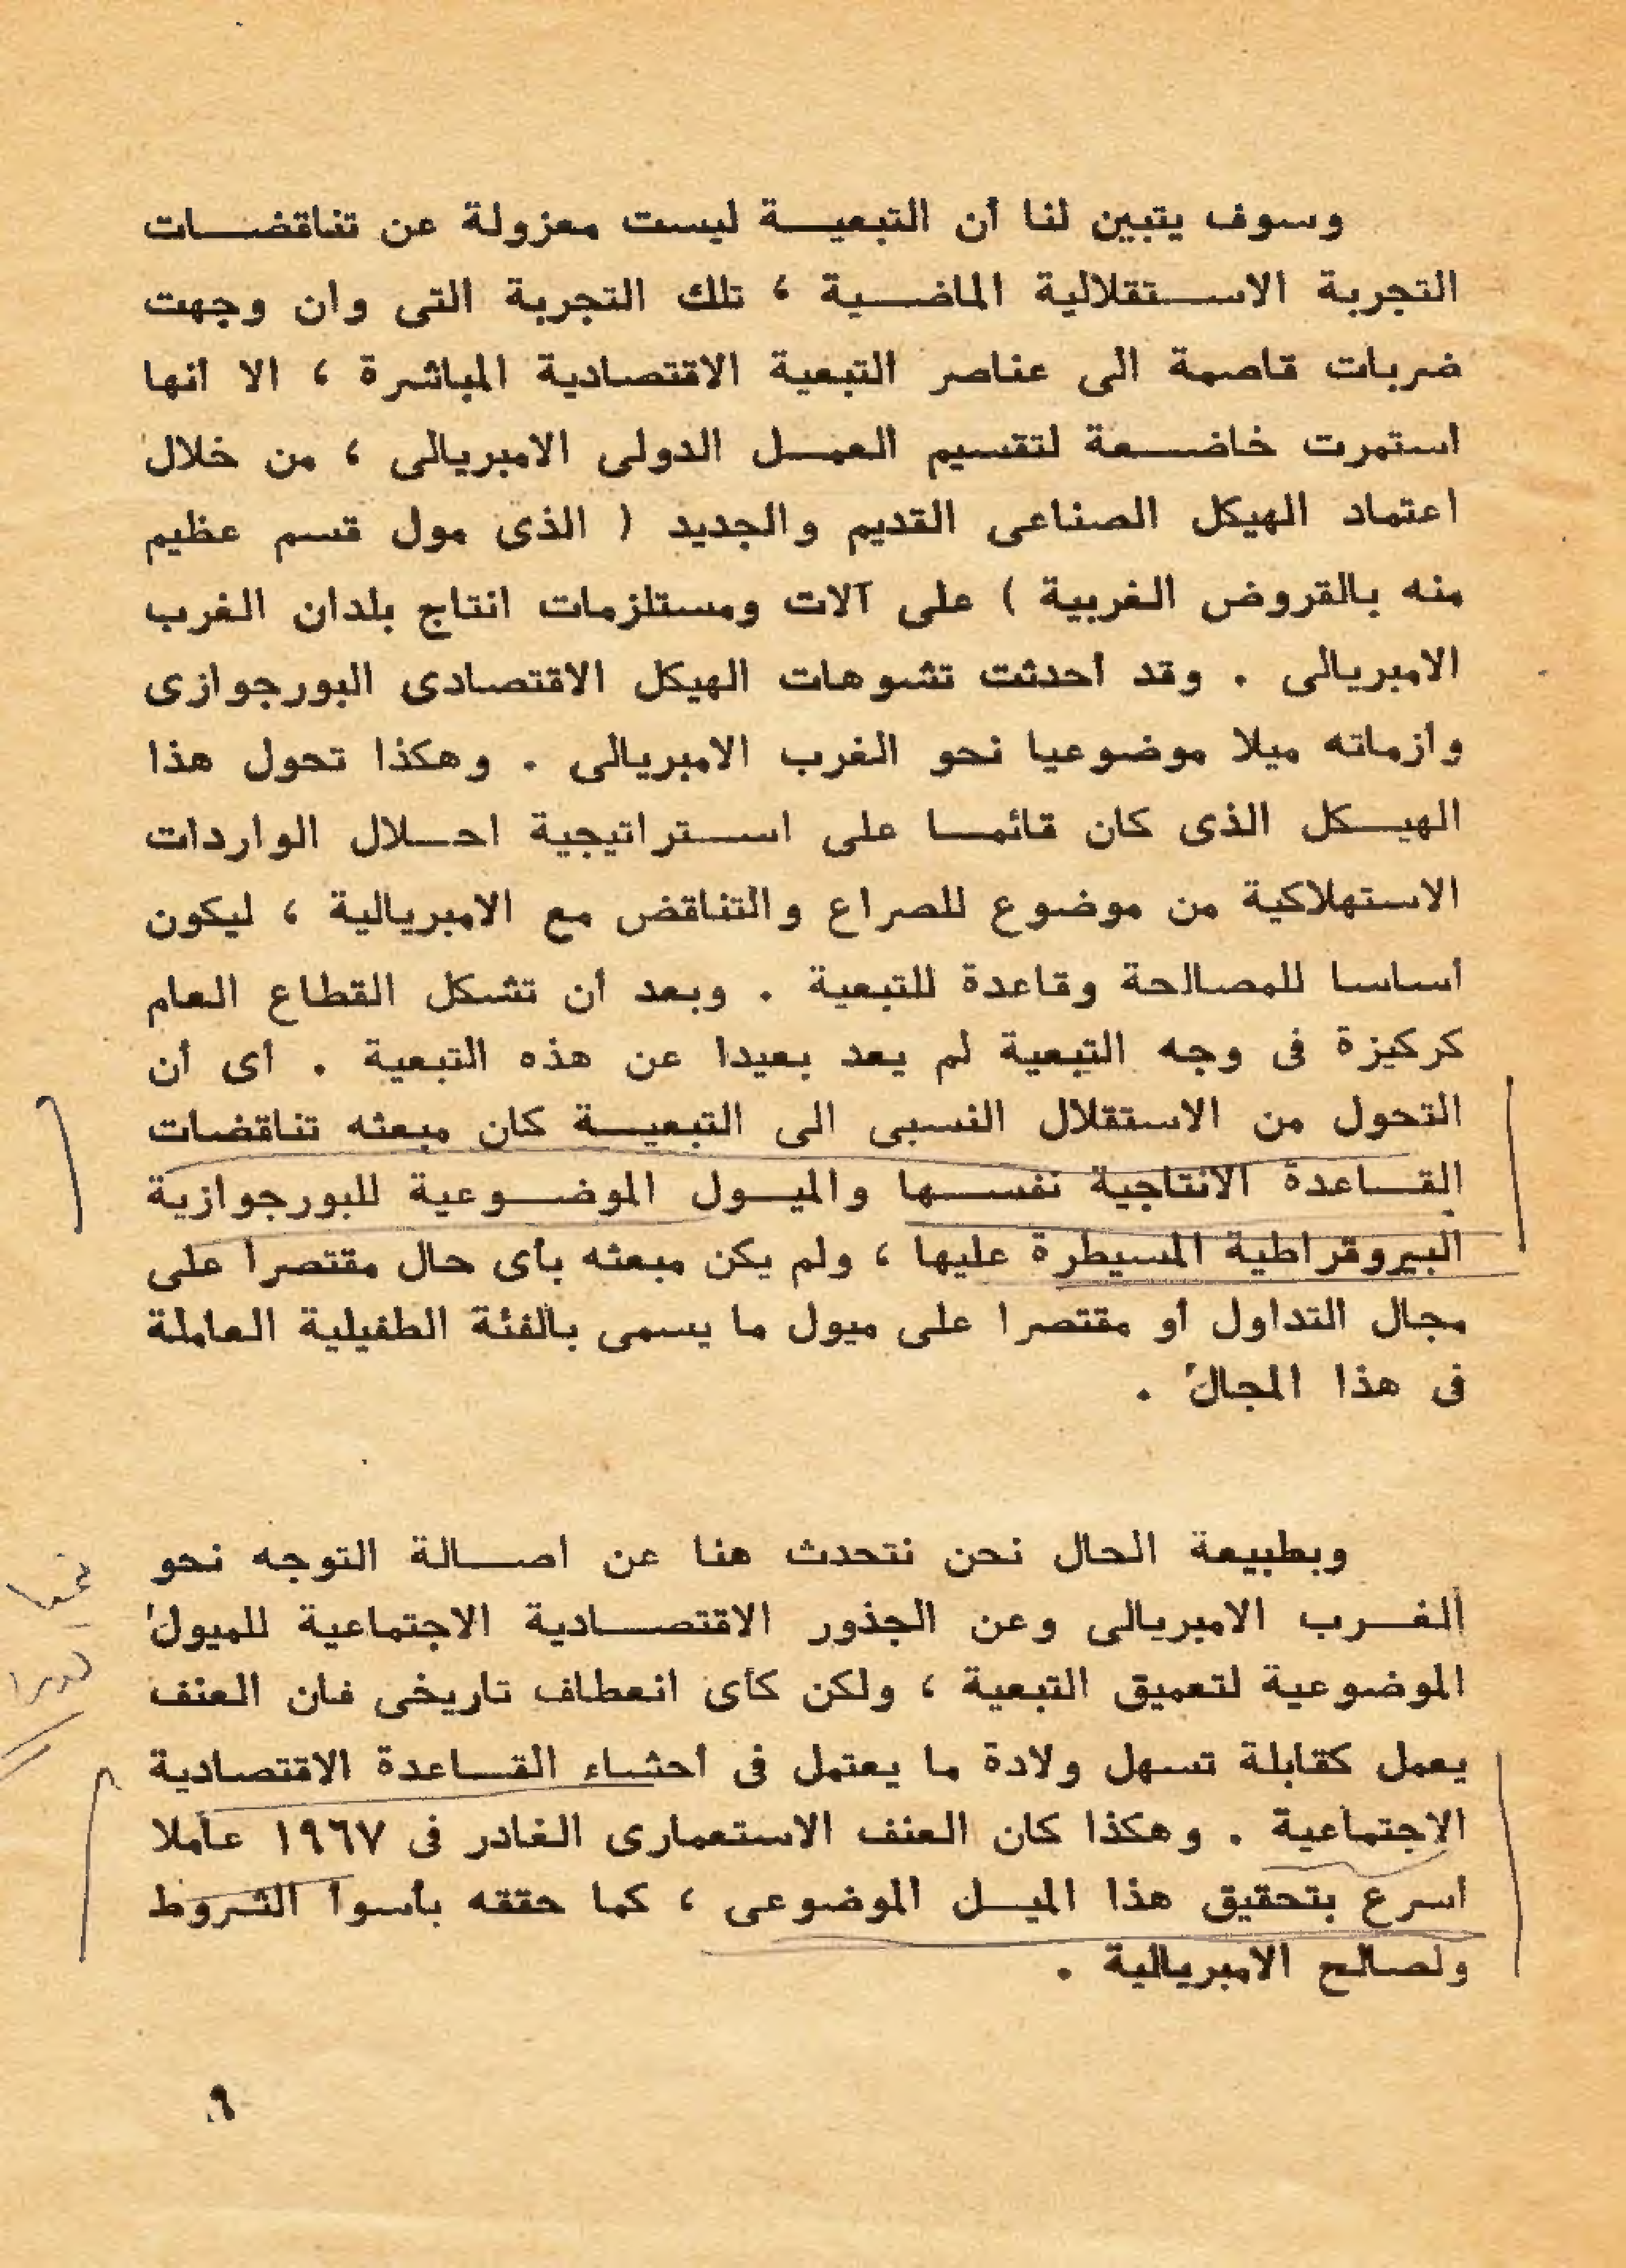 وسوف يتبين لنا أن التبعيـــة ليست معزولة عن تناقضـــات
التجربة الاســـتقلالية الماضـــية ، تلك التجربة التى وان وجهت
ضربات قاصمة الى عناصر التبعية الاقتصادية المباشرة ، الا أنها
استمرت خاضـــعة لتقسيم العمـــل الدولى الامبريالى ، من خلال
اعتماد الهيكل الصناعى القديم والجديد ( الذى مول قسم عظيم
منه بالقروض الغربية ) على آلات ومستلزمات انتاج بلدان الغرب
الامبريالى . وقد أحدثت تشوهات الهيكل الاقتصادى البورجوازى
وازماته ميلا موضوعيا نحو الغرب الامبريالى . وهكذا تحول هذا
الهيـــكل الذى كان قائمـــا على اســـتراتيجية احـــلال الواردات
الاستهلاكية من موضوع للصراع والتناقض مع الامبريالية ، ليكون
أساسا للمصالحة وقاعدة للتبعية . وبعد أن تشكل القطاع العام
كركيزة فى وجه التبعية لم يعد بعيدا عن هذه التبعية . أى أن
التحول من الاستقلال النسبى الى التبعيـــة كان مبعثه تناقضات
القـــاعدة الانتاجية نفســـها والميـــول الموضـــوعية للبورجوازية
البيروقراطية المسيطرة عليها ، ولم يكن مبعثه بأى حال مقتصرا على
مجال التداول أو مقتصرا على ميول ما يسمى بالفئة الطفيلية العاملة
فى هذا المجال .
وبطبيعة الحال نحن نتحدث هنا عن اصـــالة التوجه نحو
الغـــرب الامبريالى وعن الجذور الاقتصـــادية الاجتماعية للميول
الموضوعية لتعميق التبعية ، ولكن كأى انعطاف تاريخى فان العنف
يعمل كقابلة تسهل ولادة ما يعتمل فى أحشاء القـــاعدة الاقتصادية
الاجتماعية . وهكذا كان العنف الاستعمارى الغادر فى ١٩٦٧ عاملا
أسرع بتحقيق هذا الميـــل الموضوعى ، كما حققه بأسوأ الشروط
ولصالح الامبريالية .
٦